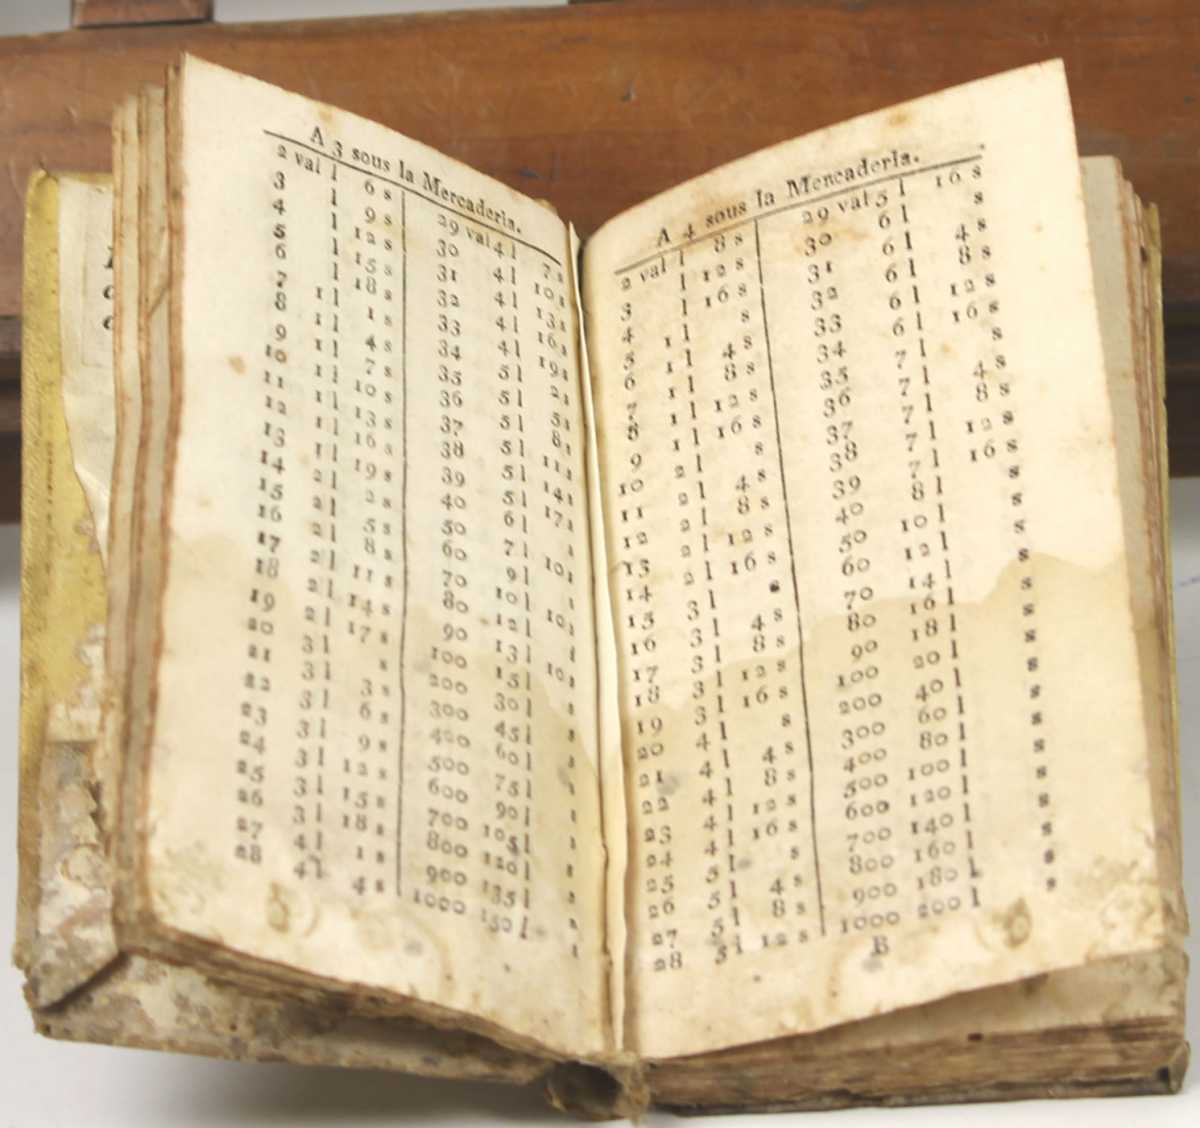 A 3 sous la Mercaderia.
2 val l 6 s
3 l 9 s
4 l 12 s
5 l 15 s
6 l 18 s
7 1 l 1 s
8 1 l 4 s
9 1 l 7 s
10 1 l 10 s
11 1 l 13 s
12 1 l 16 s
13 1 l 19 s
14 2 l 2 s
15 2 l 5 s
16 2 l 8 s
17 2 l 11 s
18 2 l 14 s
19 2 l 17 s
20 3 l s
21 3 l 3 s
22 3 l 6 s
23 3 l 9 s
24 3 l 12 s
25 3 l 15 s
26 3 l 18 s
27 4 l 1 s
28 4 l 4 s
29 val 4 l 7 s
30 4 l 10 s
31 4 l 13 s
32 4 l 16 s
33 4 l 19 s
34 5 l 2 s
35 5 l 5 s
36 5 l 8 s
37 5 l 11 s
38 5 l 14 s
39 5 l 17 s
40 6 l s
50 7 l 10 s
60 9 l s
70 10 l 10 s
80 12 l s
90 13 l 10 s
100 15 l s
200 30 l s
300 45 l s
400 60 l s
500 75 l s
600 90 l s
700 105 l s
800 120 l s
900 135 l s
1000 150 l s
A 4 sous la Mercaderia.
2 val l 8 s
3 l 12 s
4 l 16 s
5 1 l s
6 1 l 4 s
7 1 l 8 s
8 1 l 12 s
9 1 l 16 s
10 2 l s
11 2 l 4 s
12 2 l 8 s
13 2 l 12 s
14 2 l 16 s
15 3 l s
16 3 l 4 s
17 3 l 8 s
18 3 l 12 s
19 3 l 16 s
20 4 l s
21 4 l 4 s
22 4 l 8 s
23 4 l 12 s
24 4 l 16 s
25 5 l s
26 5 l 4 s
27 5 l 8 s
28 5 l 12 s
29 val 5 l 16 s
30 6 l s
31 6 l 4 s
32 6 l 8 s
33 6 l 12 s
34 6 l 16 s
35 7 l s
36 7 l 4 s
37 7 l 8 s
38 7 l 12 s
39 7 l 16 s
40 8 l s
50 10 l s
60 12 l s
70 14 l s
80 16 l s
90 18 l s
100 20 l s
200 40 l s
300 60 l s
400 80 l s
500 100 l s
600 120 l s
700 140 l s
800 160 l s
900 180 l s
1000 200 l s
B